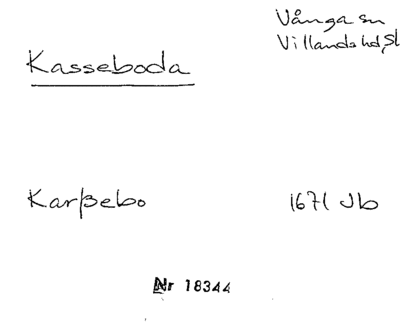 Vånga sn
Villands hd, Sk
Kasseboda
Karßebo 1671 Jb
Nr 18344